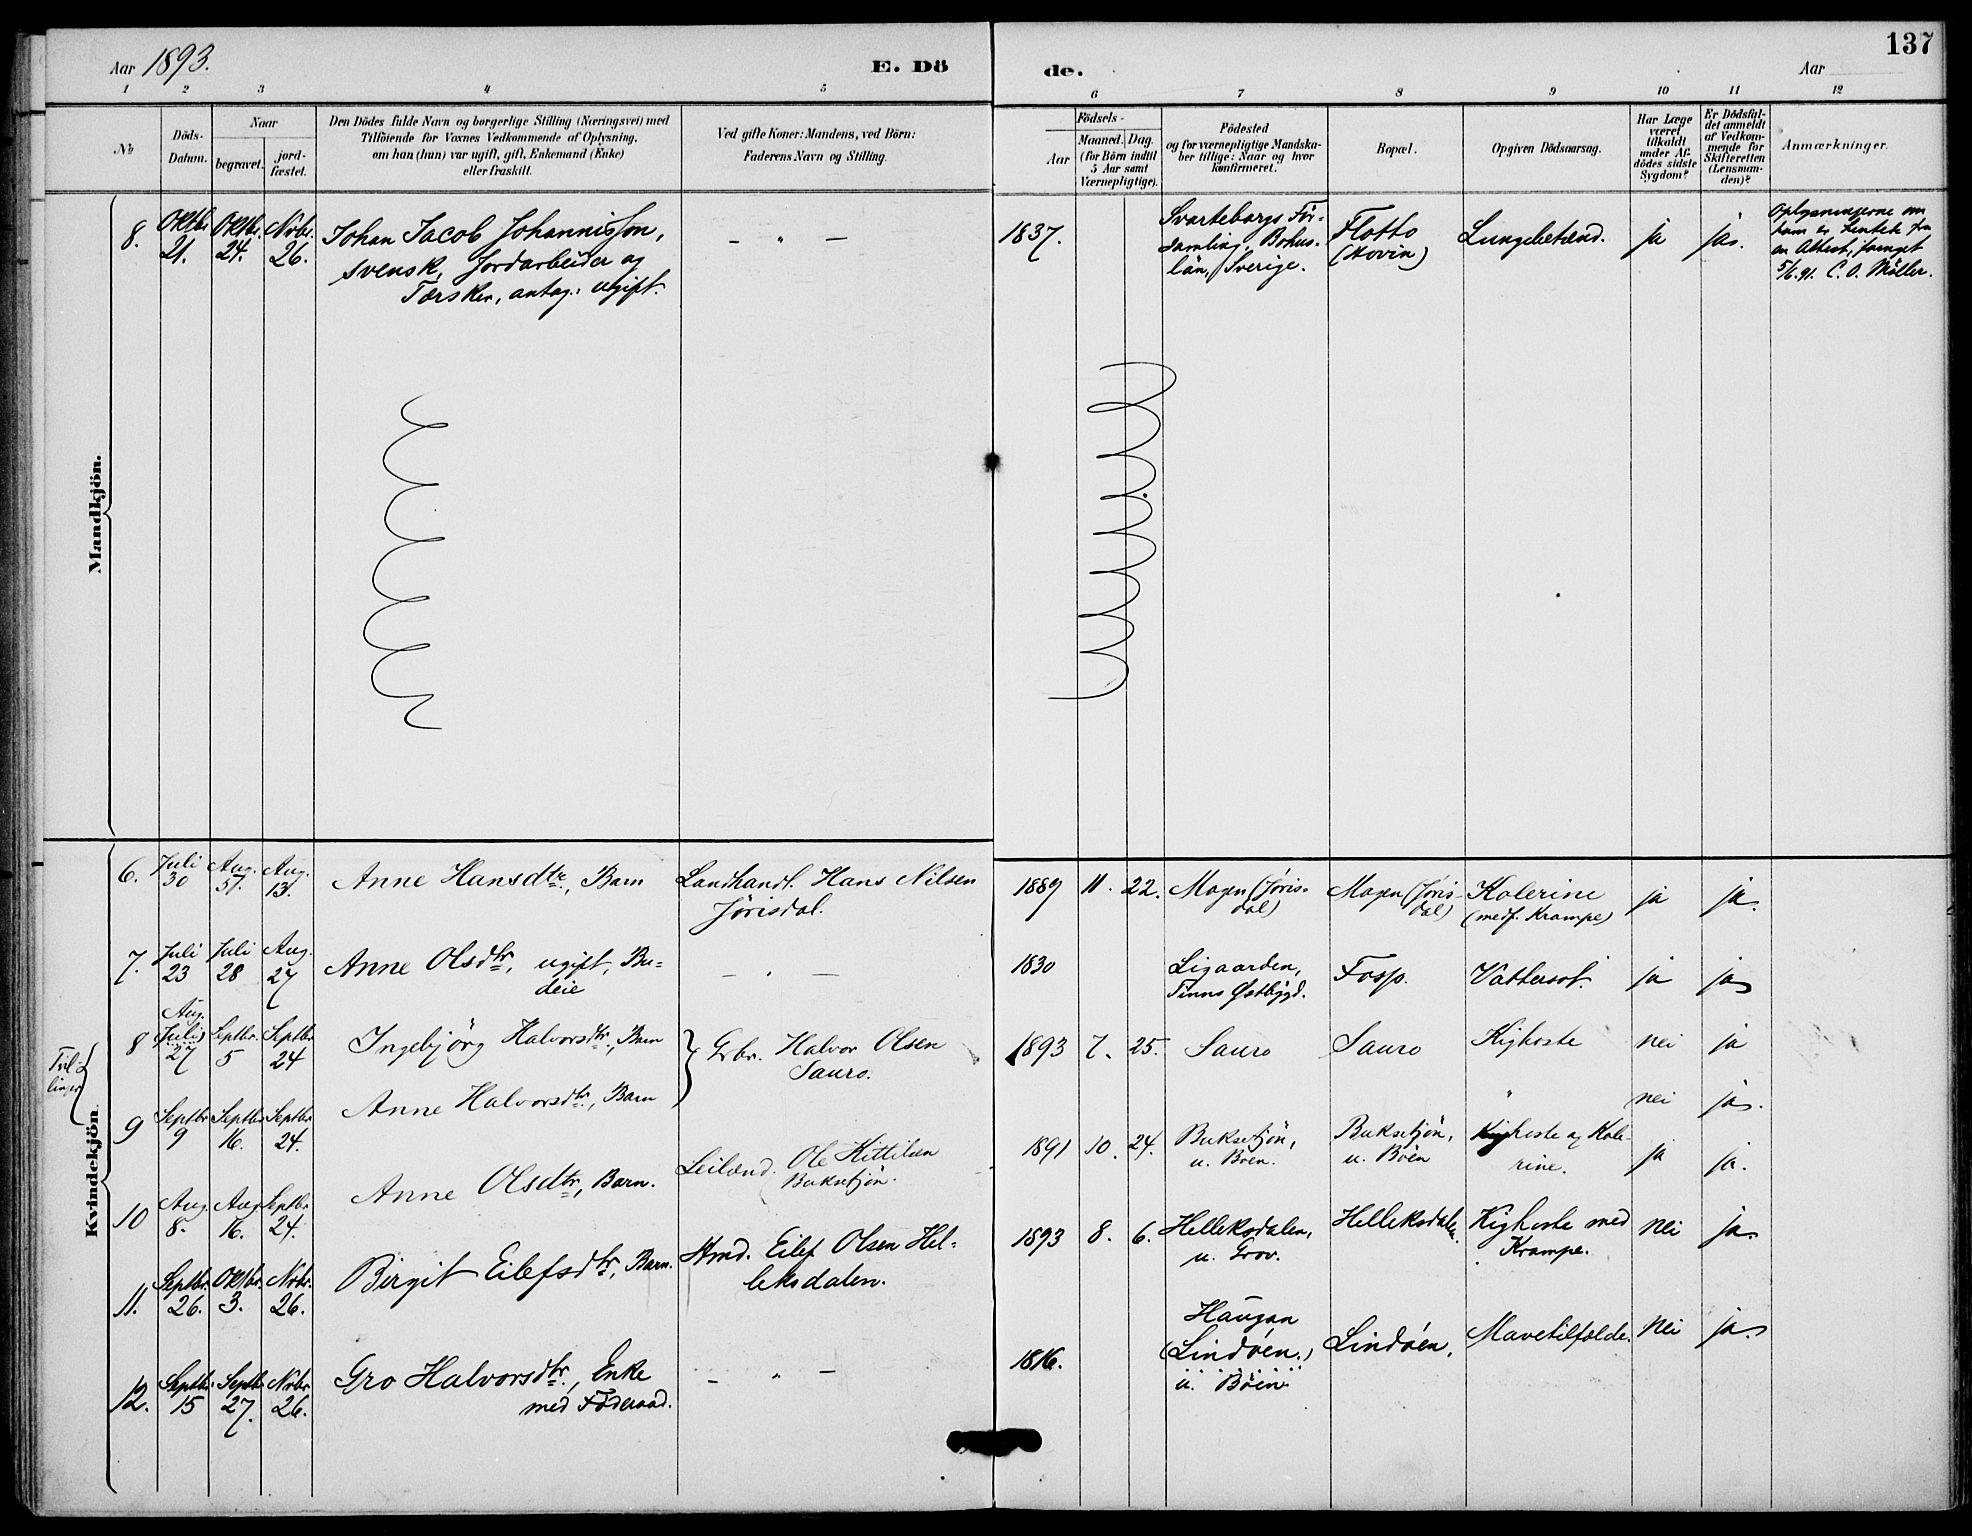 Aar 1893.
E. Dö
de.
Aar
137
1 2 3 4 5 6 7 8 9 10 11 12
No
Döds-
Datum.
Naar
begravet.
jord-
fæstet.
Den Dödes fulde Navn og borgerlige Stilling (Næringsvei) med
Tilföiende for Voxnes Vedkommende af Oplysning,
om han (hun) var ugift, gift, Enkemand (Enke)
eller fraskilt.
Ved gifte Koner: Mandens, ved Börn:
Faderens Navn og Stilling.
Födsels-
Aar
Maaned. Dag.
(for Börn indtil
5 Aar samt
Værnepligtige).
Födested
og for værnepligtige Mandska-
ber tillige: Naar og hvor
konfirmeret.
Bopæl.
Opgiven Dödsaarsag.
Har Læge
været
tilkaldt
under Af-
dödes sidste
Sygdom?
Er Dödsfal-
det anmeldt
af Vedkom-
mende for
Skifteretten
(Lensman-
den)?
Anmærkninger.
Mandkjön.
8. Oktbr. 21. Oktbr. 24. Novbr. 26.
Johan Jacob Johannisson,
svensk, Jordarbeider og
Tærsker, antag: ugift.
— " —
1837.
Svarteborgs För-
samling, Bohus-
län, Sverige.
Flatto
(Hovin)
Lungebetænd.
ja
ja.
Oplysningerne om
ham er hentet fra
en Attest,
5/6.91. C. O. Möller.
Kvindekjön.
6. Juli 30 Aug. 5. Aug. 13.
Anne Hansdtr., Barn
Landhandl. Hans Nilsen
Jørisdal.
1889 11. 22.
Mogen (Jøris-
dal)
Mogen (Jøris-
dal)
Kolerine
(medf. Krampe)
ja
ja.
7. Juli 23 Juli 28 Aug. 27
Anne Olsdtr, ugift, Bu-
deie
— " —
1830
Ligaarden,
Tinns Østbygd.
Fosso.
Vattersot.
ja
ja
Tvil-
linger
8 Aug. (Juli) 27 Septbr. 5 Septbr. 24
Ingebjörg Halvorsdtr., Barn
Grbr. Halvor Olsen
Sauro.
1893 7. 25.
Sauro
Sauro
Kighoste
nei
ja
9 Septbr 9 Septbr 16. Septbr. 24.
Anne Halvorsdtr., Barn
"
nei
ja.
10 Aug. 8. Aug. 16. Septbr. 24.
Anne Olsdtr, Barn.
Leilænd. Ole Kittilsen
Buksetjön.
1891 10. 24.
Buksetjön,
u. Bøen.
Buksetjön,
u. Bøen
Kighoste og Kole-
rine.
ja
ja.
11. Septbr. 26. Oktbr. 3. Novbr. 26.
Birgit Eilefsdtr, Barn.
Hmd. Eilef Olsen Hel-
leksdalen.
1893 8. 6.
Helleksdalen,
u. Grov.
Helleksdalen.
Kighoste med
Krampe.
nei
ja
12. Septbr. 15 Septbr 27. Novbr 26.
Gro Halvorsdtr., Enke
med Föderaad.
— " —
1816.
Haugan
(Lindøen.)
u. Bøen.
Lindøen.
Mavetilfælde.
nei
ja.